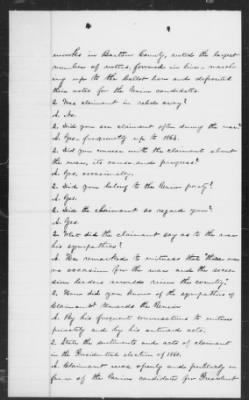 works in Bartow County, united the largest
number of voters, formed in line - march-
ing up to the ballot box and deposited
their votes for the Union candidates.
Q. Was claimant in rebels army?
A. No.
Q. Did you see claimant often during the war?
A. Yes, frequently up to 1864.
Q. Did you converse with the claimant about
the war, its cause and progress?
A. Yes, occasionally.
Q. Did you belong to the Union party?
A. Yes.
Q. Did the claimant so regard you?
A. Yes.
Q. What did the claimant say as to the war
his sympathies?
A. Has remarked to witness that there was
no occasion for the war and the seces-
sion leaders would ruin the country.
Q. How did you know of the sympathies of
claimant towards the Union
A. By his frequent conversations to witness
privately and by his outward acts.
Q. State the sentiments and acts of claimant
in the Presidential election of 1860.
A. Claimant was openly and publicly in
favor of the Union candidate for President